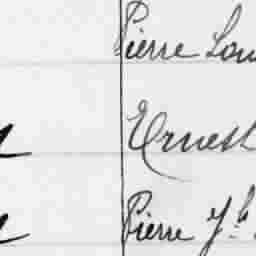 Pierre Lou
Ernest
Pierre Y.